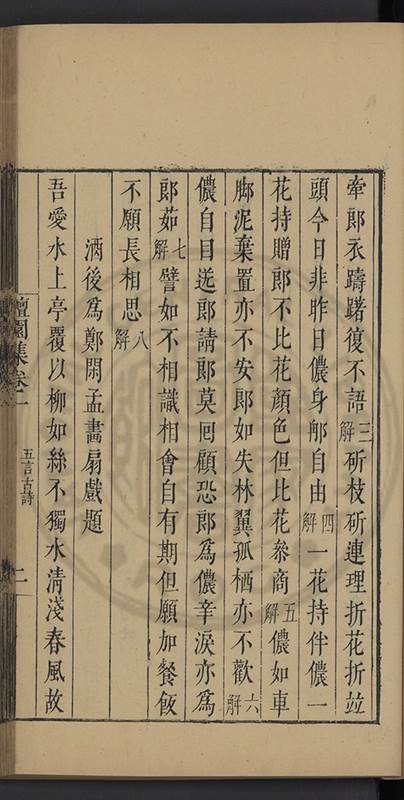 牽郎衣躊躇復不語三解斫枝斫連理折花折並
頭今日非昨日儂身那自由四解一花持伴儂一
花持贈郎不比花顏色但比花參商五解儂如車
脚泥棄置亦不安郎如失林翼孤栖亦不歡六解
儂自目送郎請郎莫囘顧恐郎為儂辛淚亦為
郎茹七解譬如不相識相會自有期但願加餐飯
不願長相思八解
酒後為鄭閑孟畫扇戲題
吾愛水上亭覆以柳如絲不獨水清淺春風故
檀園集卷二
五言古詩
二